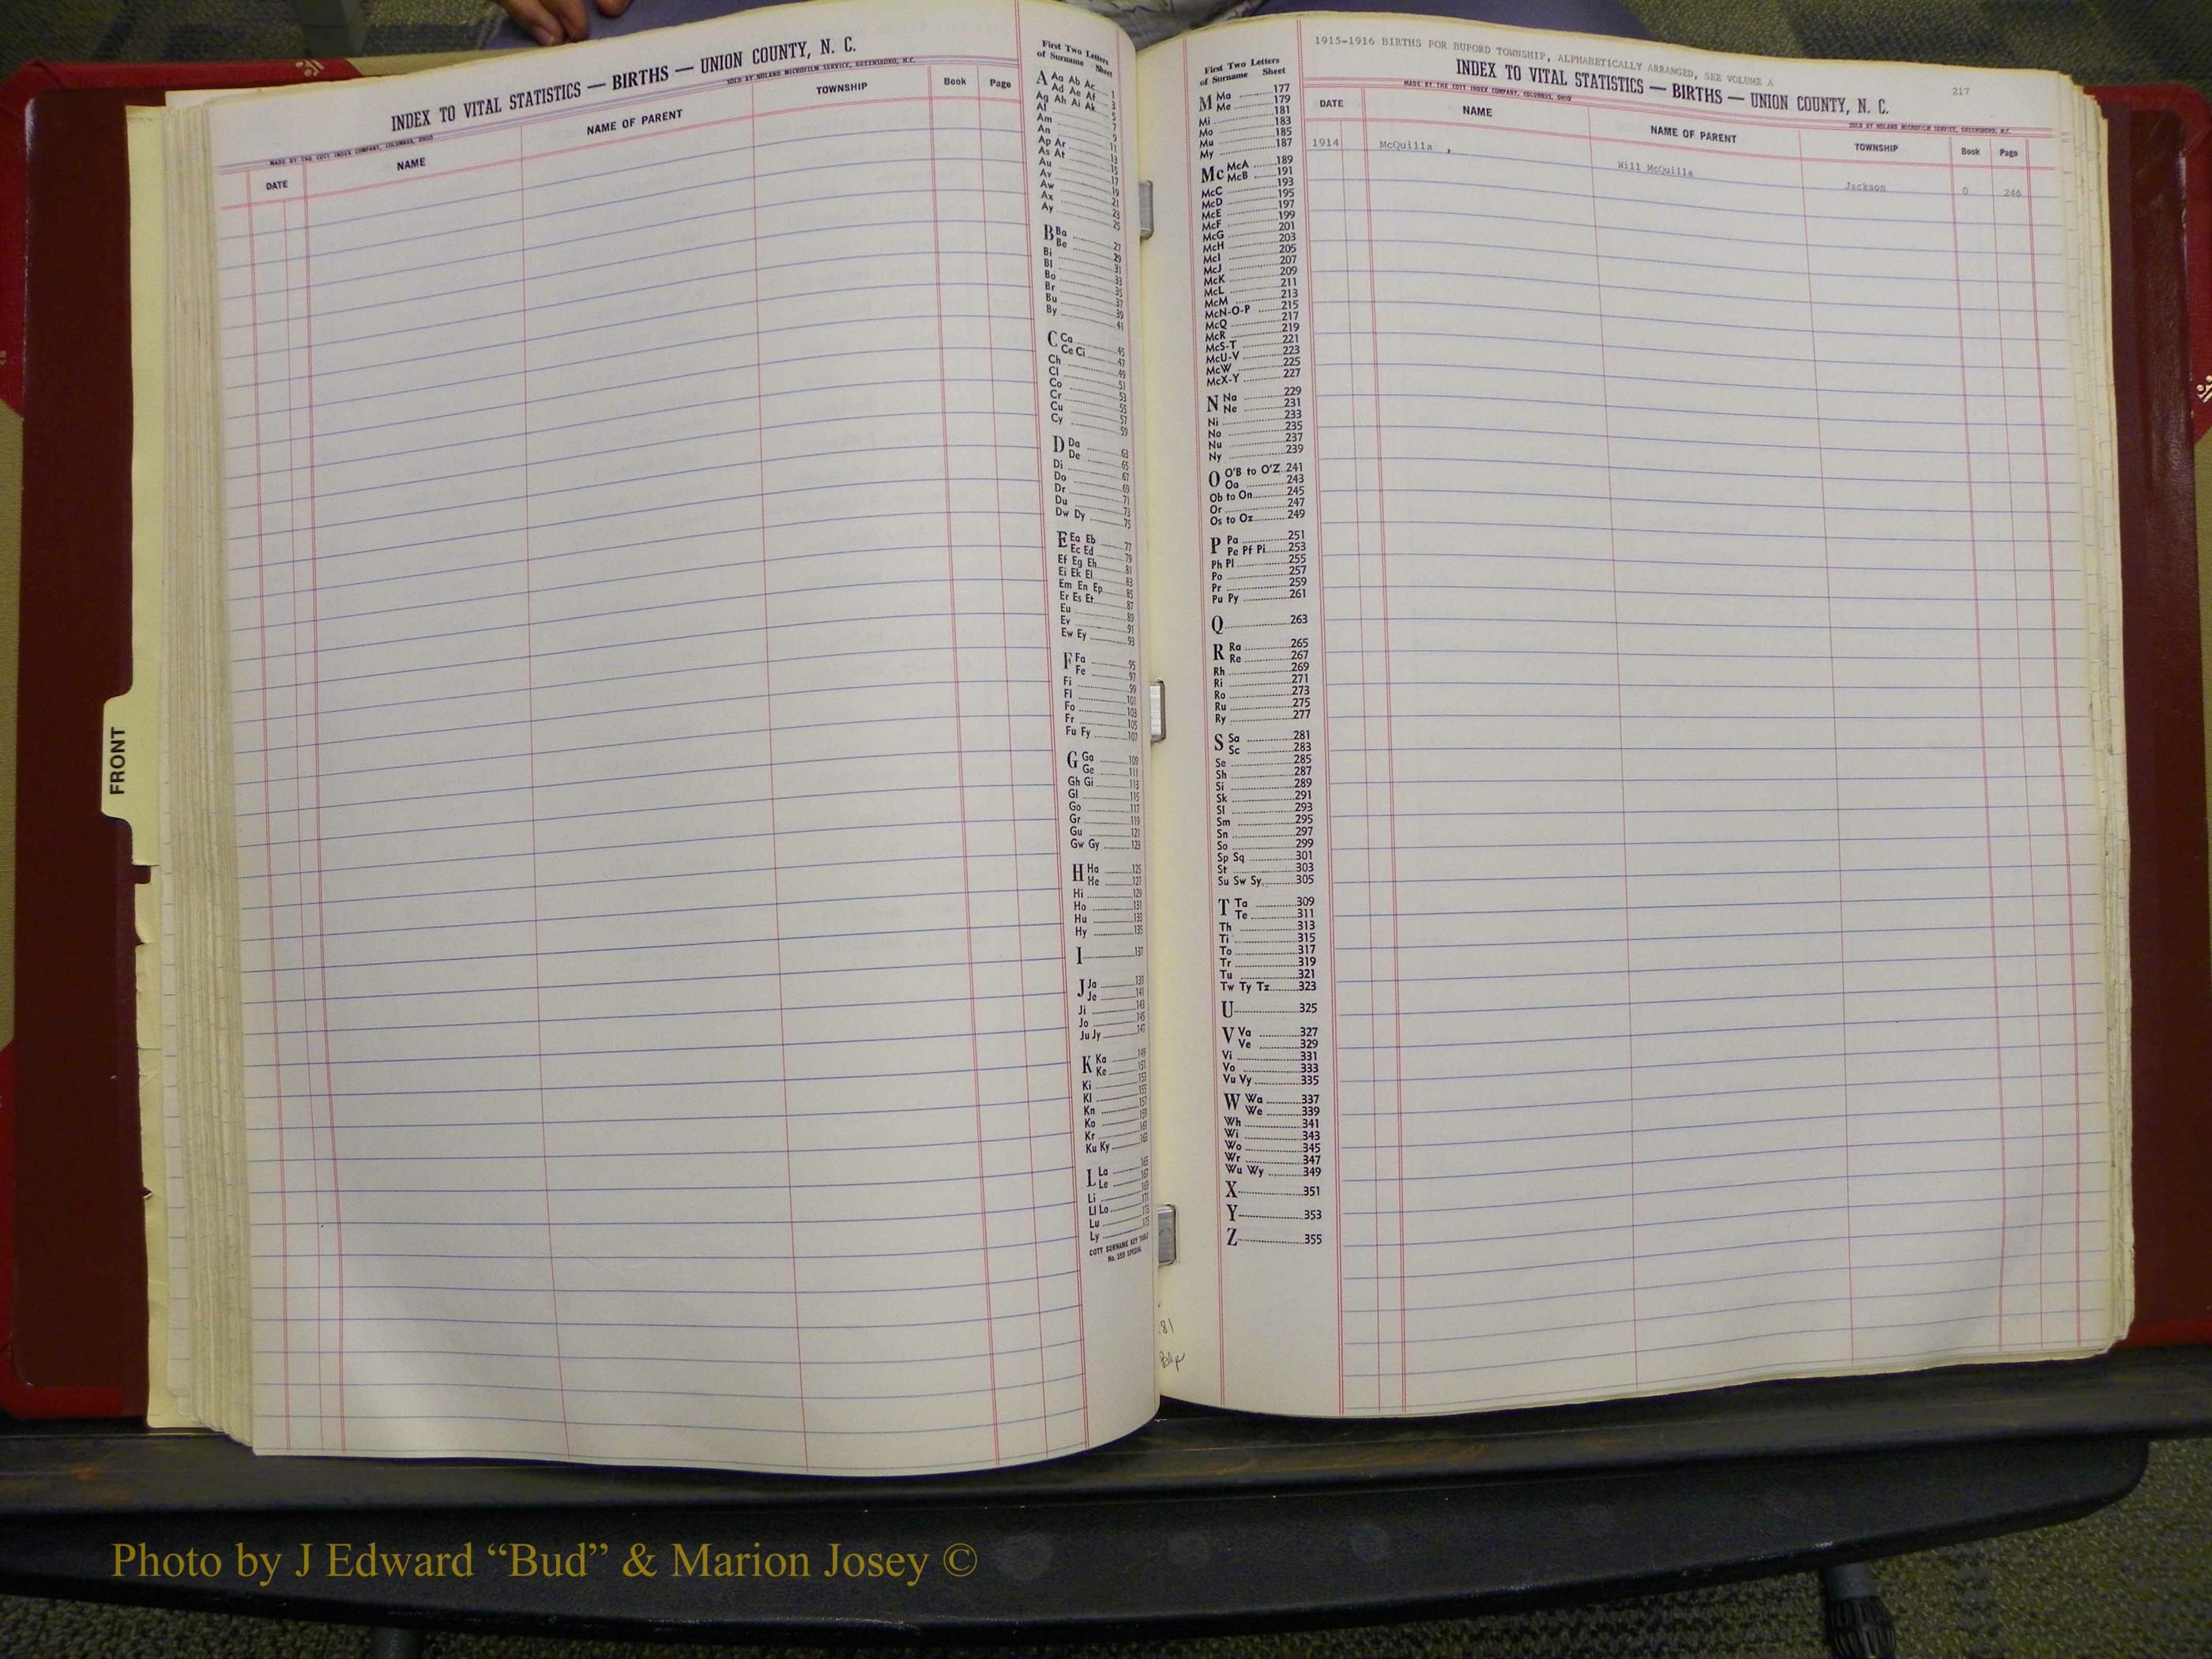 FRONT
INDEX TO VITAL STATISTICS — BIRTHS — UNION COUNTY, N. C.
MADE BY THE COTT INDEX COMPANY, COLUMBUS, OHIO
SOLD BY NOLAND MICROFILM SERVICE, GREENSBORO, N.C.
DATE NAME NAME OF PARENT TOWNSHIP Book Page
First Two Letters
of Surname Sheet
A Aa Ab Ac 1
Ad Ae Af 3
Ag Ah Ai Ak 5
Al 7
Am 9
An 11
Ap Ar 13
As At 15
Au 17
Av 19
Aw 21
Ax 23
Ay 25
B Ba 27
Be 29
Bi 31
Bl 33
Bo 35
Br 37
Bu 39
By 41
C Ca 45
Ce Ci 47
Ch 49
Cl 51
Co 53
Cr 55
Cu 57
Cy 59
D Da 63
De 65
Di 67
Do 69
Dr 71
Du 73
Dw Dy 75
E Ea Eb 77
Ec Ed 79
Ef Eg Eh 81
Ei Ek El 83
Em En Ep 85
Er Es Et 87
Eu 89
Ev 91
Ew Ey 93
F Fa 95
Fe 97
Fi 99
Fl 101
Fo 103
Fr 105
Fu Fy 107
G Ga 109
Ge 111
Gh Gi 113
Gl 115
Go 117
Gr 119
Gu 121
Gw Gy 123
H Ha 125
He 127
Hi 129
Ho 131
Hu 133
Hy 135
I 137
J Ja 139
Je 141
Ji 143
Jo 145
Ju Jy 147
K Ka 149
Ke 151
Ki 153
Kl 155
Kn 157
Ko 159
Kr 161
Ku Ky 163
L La 165
Le 167
Li 169
Ll Lo 171
Lu 173
Ly 175
COTT SURNAME KEY TABLE
No. 355 SPECIAL
81
1915-1916 BIRTHS FOR BUFORD TOWNSHIP, ALPHABETICALLY ARRANGED, SEE VOLUME A
217
INDEX TO VITAL STATISTICS — BIRTHS — UNION COUNTY, N. C.
MADE BY THE COTT INDEX COMPANY, COLUMBUS, OHIO
SOLD BY NOLAND MICROFILM SERVICE, GREENSBORO, N.C.
DATE NAME NAME OF PARENT TOWNSHIP Book Page
1914 McQuilla , Will McQuilla Jackson 0 246
First Two Letters
of Surname Sheet
M Ma 177
Me 179
Mi 181
Mo 183
Mu 185
My 187
Mc McA 189
McB 191
McC 193
McD 195
McE 197
McF 199
McG 201
McH 203
McI 205
McJ 207
McK 209
McL 211
McM 213
McN-O-P 215
McQ 217
McR 219
McS-T 221
McU-V 223
McW 225
McX-Y 227
N Na 229
Ne 231
Ni 233
No 235
Nu 237
Ny 239
O O'B to O'Z 241
Oa 243
Ob to On 245
Or 247
Os to Oz 249
P Pa 251
Pe Pf Pi 253
Ph Pl 255
Po 257
Pr 259
Pu Py 261
Q 263
R Ra 265
Re 267
Rh 269
Ri 271
Ro 273
Ru 275
Ry 277
S Sa 281
Sc 283
Se 285
Sh 287
Si 289
Sk 291
Sl 293
Sm 295
Sn 297
So 299
Sp Sq 301
St 303
Su Sw Sy 305
T Ta 309
Te 311
Th 313
Ti 315
To 317
Tr 319
Tu 321
Tw Ty Tz 323
U 325
V Va 327
Ve 329
Vi 331
Vo 333
Vu Vy 335
W Wa 337
We 339
Wh 341
Wi 343
Wo 345
Wr 347
Wu Wy 349
X 351
Y 353
Z 355
Photo by J Edward “Bud” & Marion Josey ©